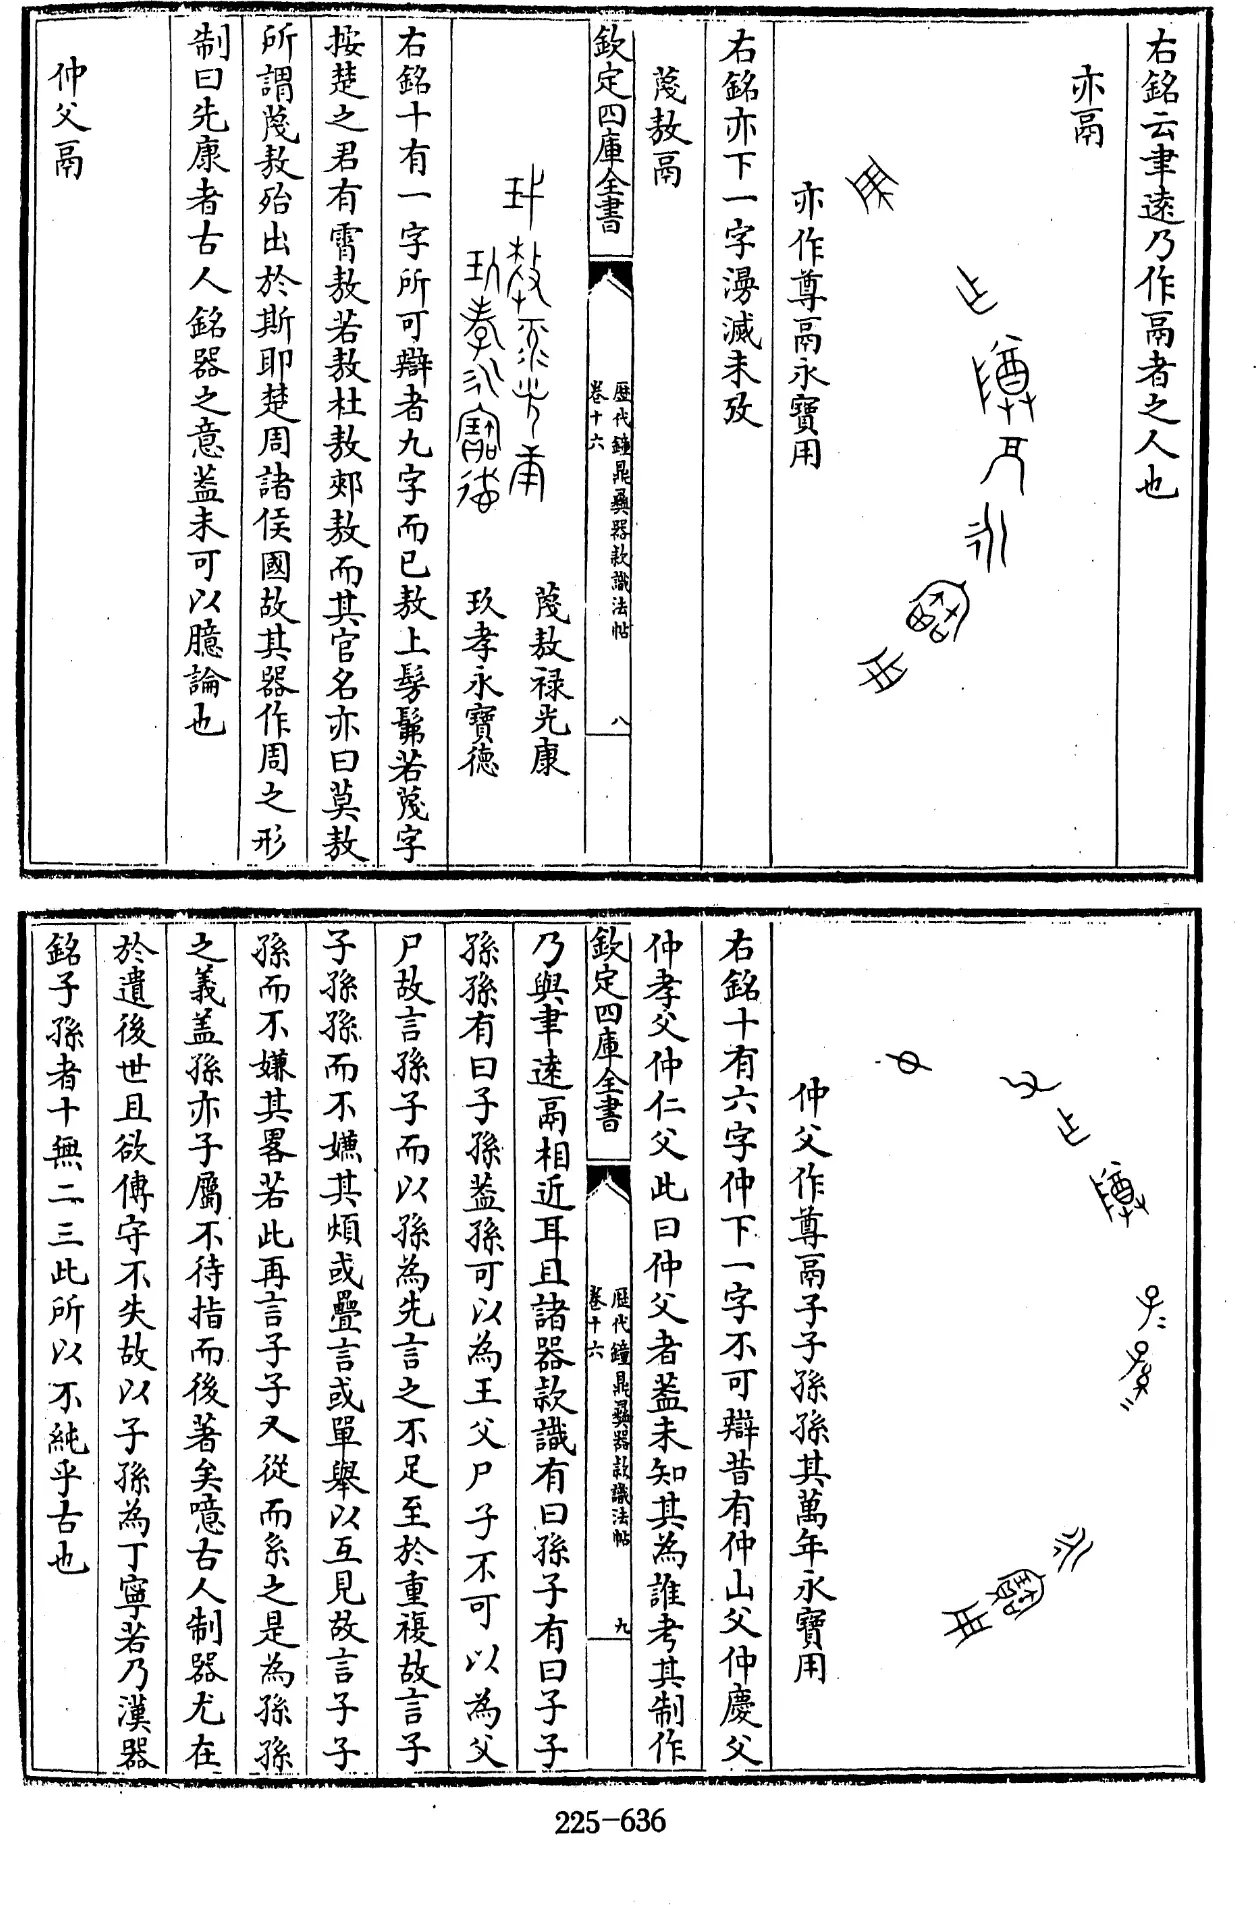 右銘云聿遠乃作鬲者之人也
亦鬲
亦作尊鬲永寶用
右銘亦下一字漫滅未攷
蔑敖鬲
欽定四庫全書
歷代鐘鼎彝器款識法帖
卷十六
八
蔑敖祿光康
玖孝永寶德
右銘十有一字所可辯者九字而已敖上髣髴若蔑字
按楚之君有霄敖若敖杜敖郟敖而其官名亦曰莫敖
所謂蔑敖殆出於斯耶楚周諸侯國故其器作周之形
制曰先康者古人銘器之意蓋未可以臆論也
仲父鬲
仲父作尊鬲子子孫孫其萬年永寶用
右銘十有六字仲下一字不可辯昔有仲山父仲慶父
仲孝父仲仁父此曰仲父者蓋未知其為誰考其制作
欽定四庫全書
歷代鐘鼎彝器款識法帖
卷十六
九
乃與聿遠鬲相近耳且諸器款識有曰孫子有曰子子
孫孫有曰子孫蓋孫可以為王父尸子不可以為父
尸故言孫子而以孫為先言之不足至於重複故言子
子孫孫而不嫌其煩或疊言或單舉以互見故言子子
孫而不嫌其畧若此再言子子又從而系之是為孫孫
之義盖孫亦子屬不待指而後著矣噫古人制器尤在
於遺後世且欲傳守不失故以子孫為丁寧若乃漢器
銘子孫者十無二三此所以不純乎古也
225-636